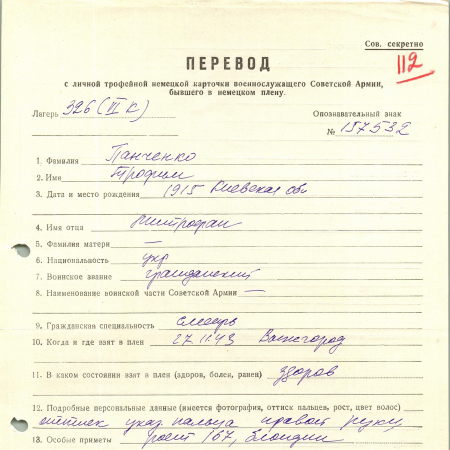 Сов. секретно
112
ПЕРЕВОД
с личной трофейной немецкой карточки военнослужащего Советской Армии,
бывшего в немецком плену.
Лагерь 326 (VI К)
Опознавательный знак
№ 157532
1. Фамилия Панченко
2. Имя Трофим
3. Дата и место рождения 1915 Киевская обл
4. Имя отца Митрофан
5. Фамилия матери —
6. Национальность укр
7. Воинское звание гражданский
8. Наименование воинской части Советской Армии —
9. Гражданская специальность слесарь
10. Когда и где взят в плен 27.11.43
11. В каком состоянии взят в плен (здоров, болен, ранен) здоров
12. Подробные персональные данные (имеется фотография, оттиск пальцев, рост, цвет волос)
оттиск указ. пальца правой руки
13. Особые приметы рост 167, блондин